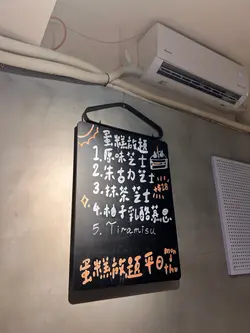 蛋糕放題
1. 原味芝士
2. 朱古力芝士
3. 抹茶芝士
4. 柚子乳酪慕思
5. Tiramisu
蛋糕放題 平日